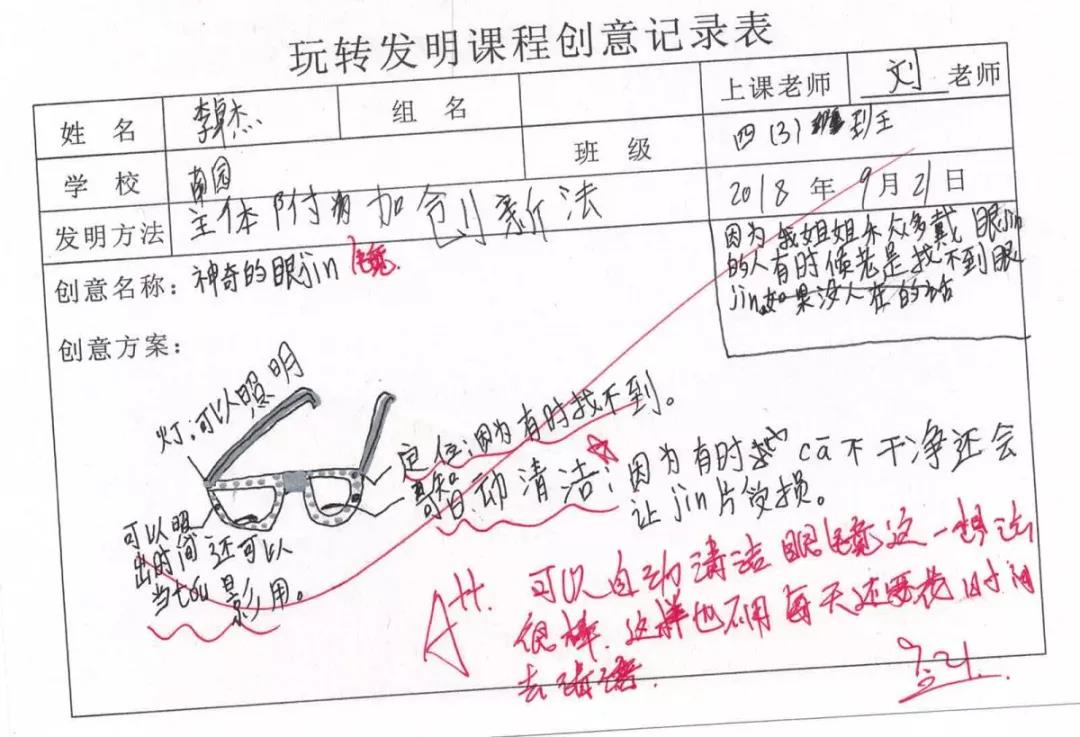 玩转发明课程创意记录表
姓 名 李卓杰 组 名 上课老师 刘 老师
学 校 南园 班 级 四 (3) 班
发明方法 主体附加创新法 2018 年 9月21日
创意名称：神奇的眼jin 镜
因为我姐姐和众多戴眼jin
的人有时候老是找不到眼
jin,如果没人在的话
创意方案：
灯：可以照明
定位：因为有时找不到。
可自动清洁：因为有时 cā不干净还会
让jin片受损。
可以照
出时间还可以
当tou影用。
A++. 可以自动清洁眼镜这一想法
很棒.这样也不用每天还要花时间
去清洁.
9.21.